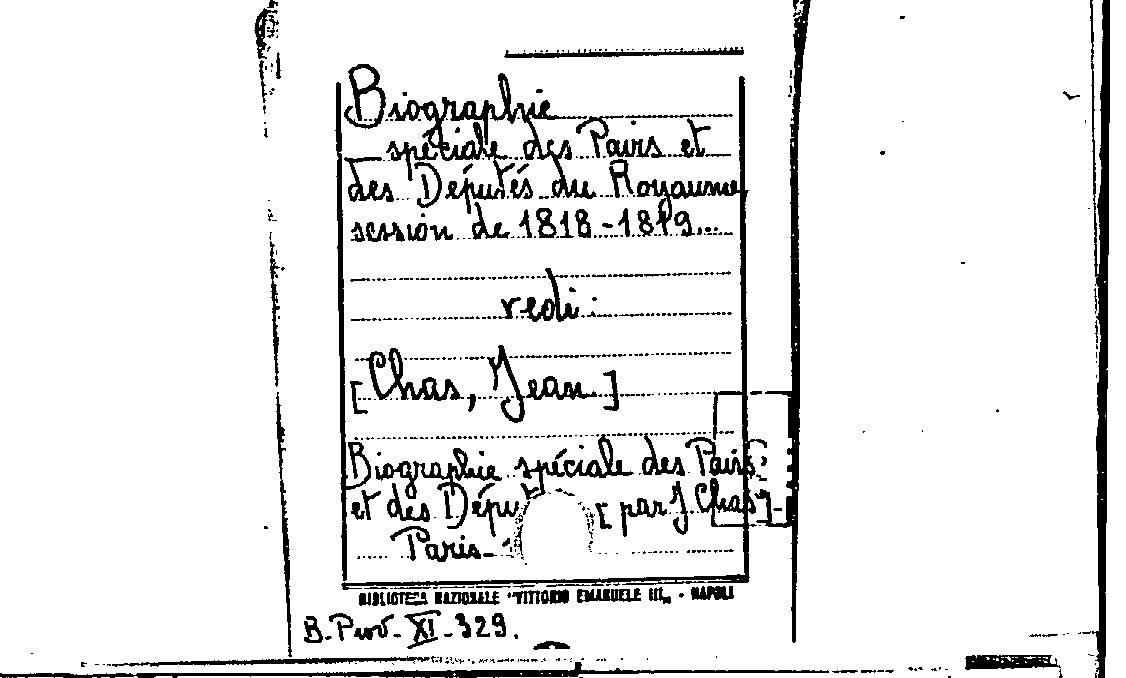 Biographie
spéciale des Pairs et
des Députés du Royaume,
session de 1818-1819...
vedi:
[Chas, Jean.]
Biographie spéciale des Pairs
et des Dépu [par J Chas].-
Paris-
BIBLIOTECA NAZIONALE "VITTORIO EMANUELE III„ - NAPOLI
B. Prov. XI-329.